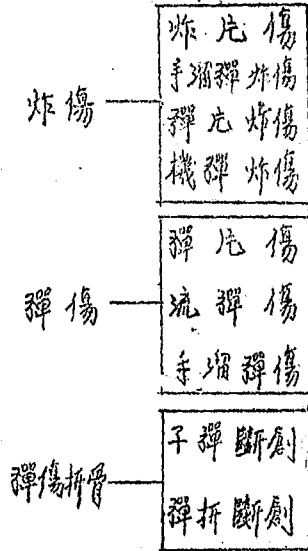 炸傷
炸片傷
手溜彈炸傷
彈片炸傷
機彈炸傷
彈傷
彈片傷
流彈傷
手溜彈傷
彈傷折骨
子彈斷創
彈折斷創